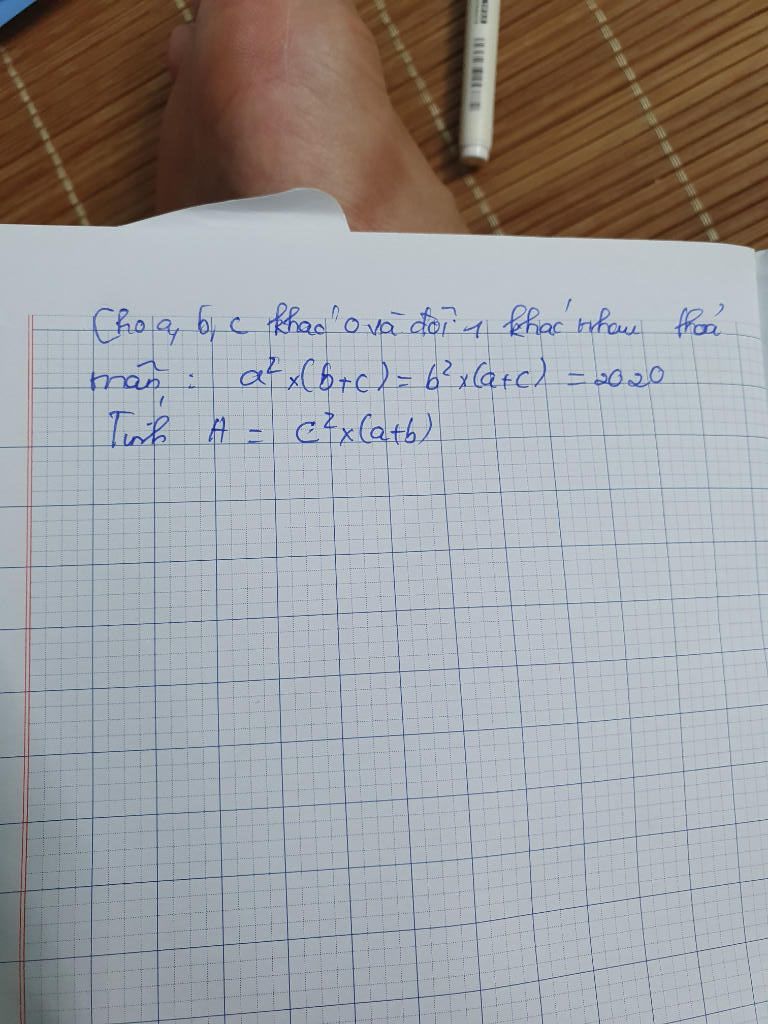 Cho a, b, c khác 0 và đôi 1 khác nhau thoả
mãn : a² x (b+c) = b² x (a+c) = 2020
Tính A = c² x (a+b)